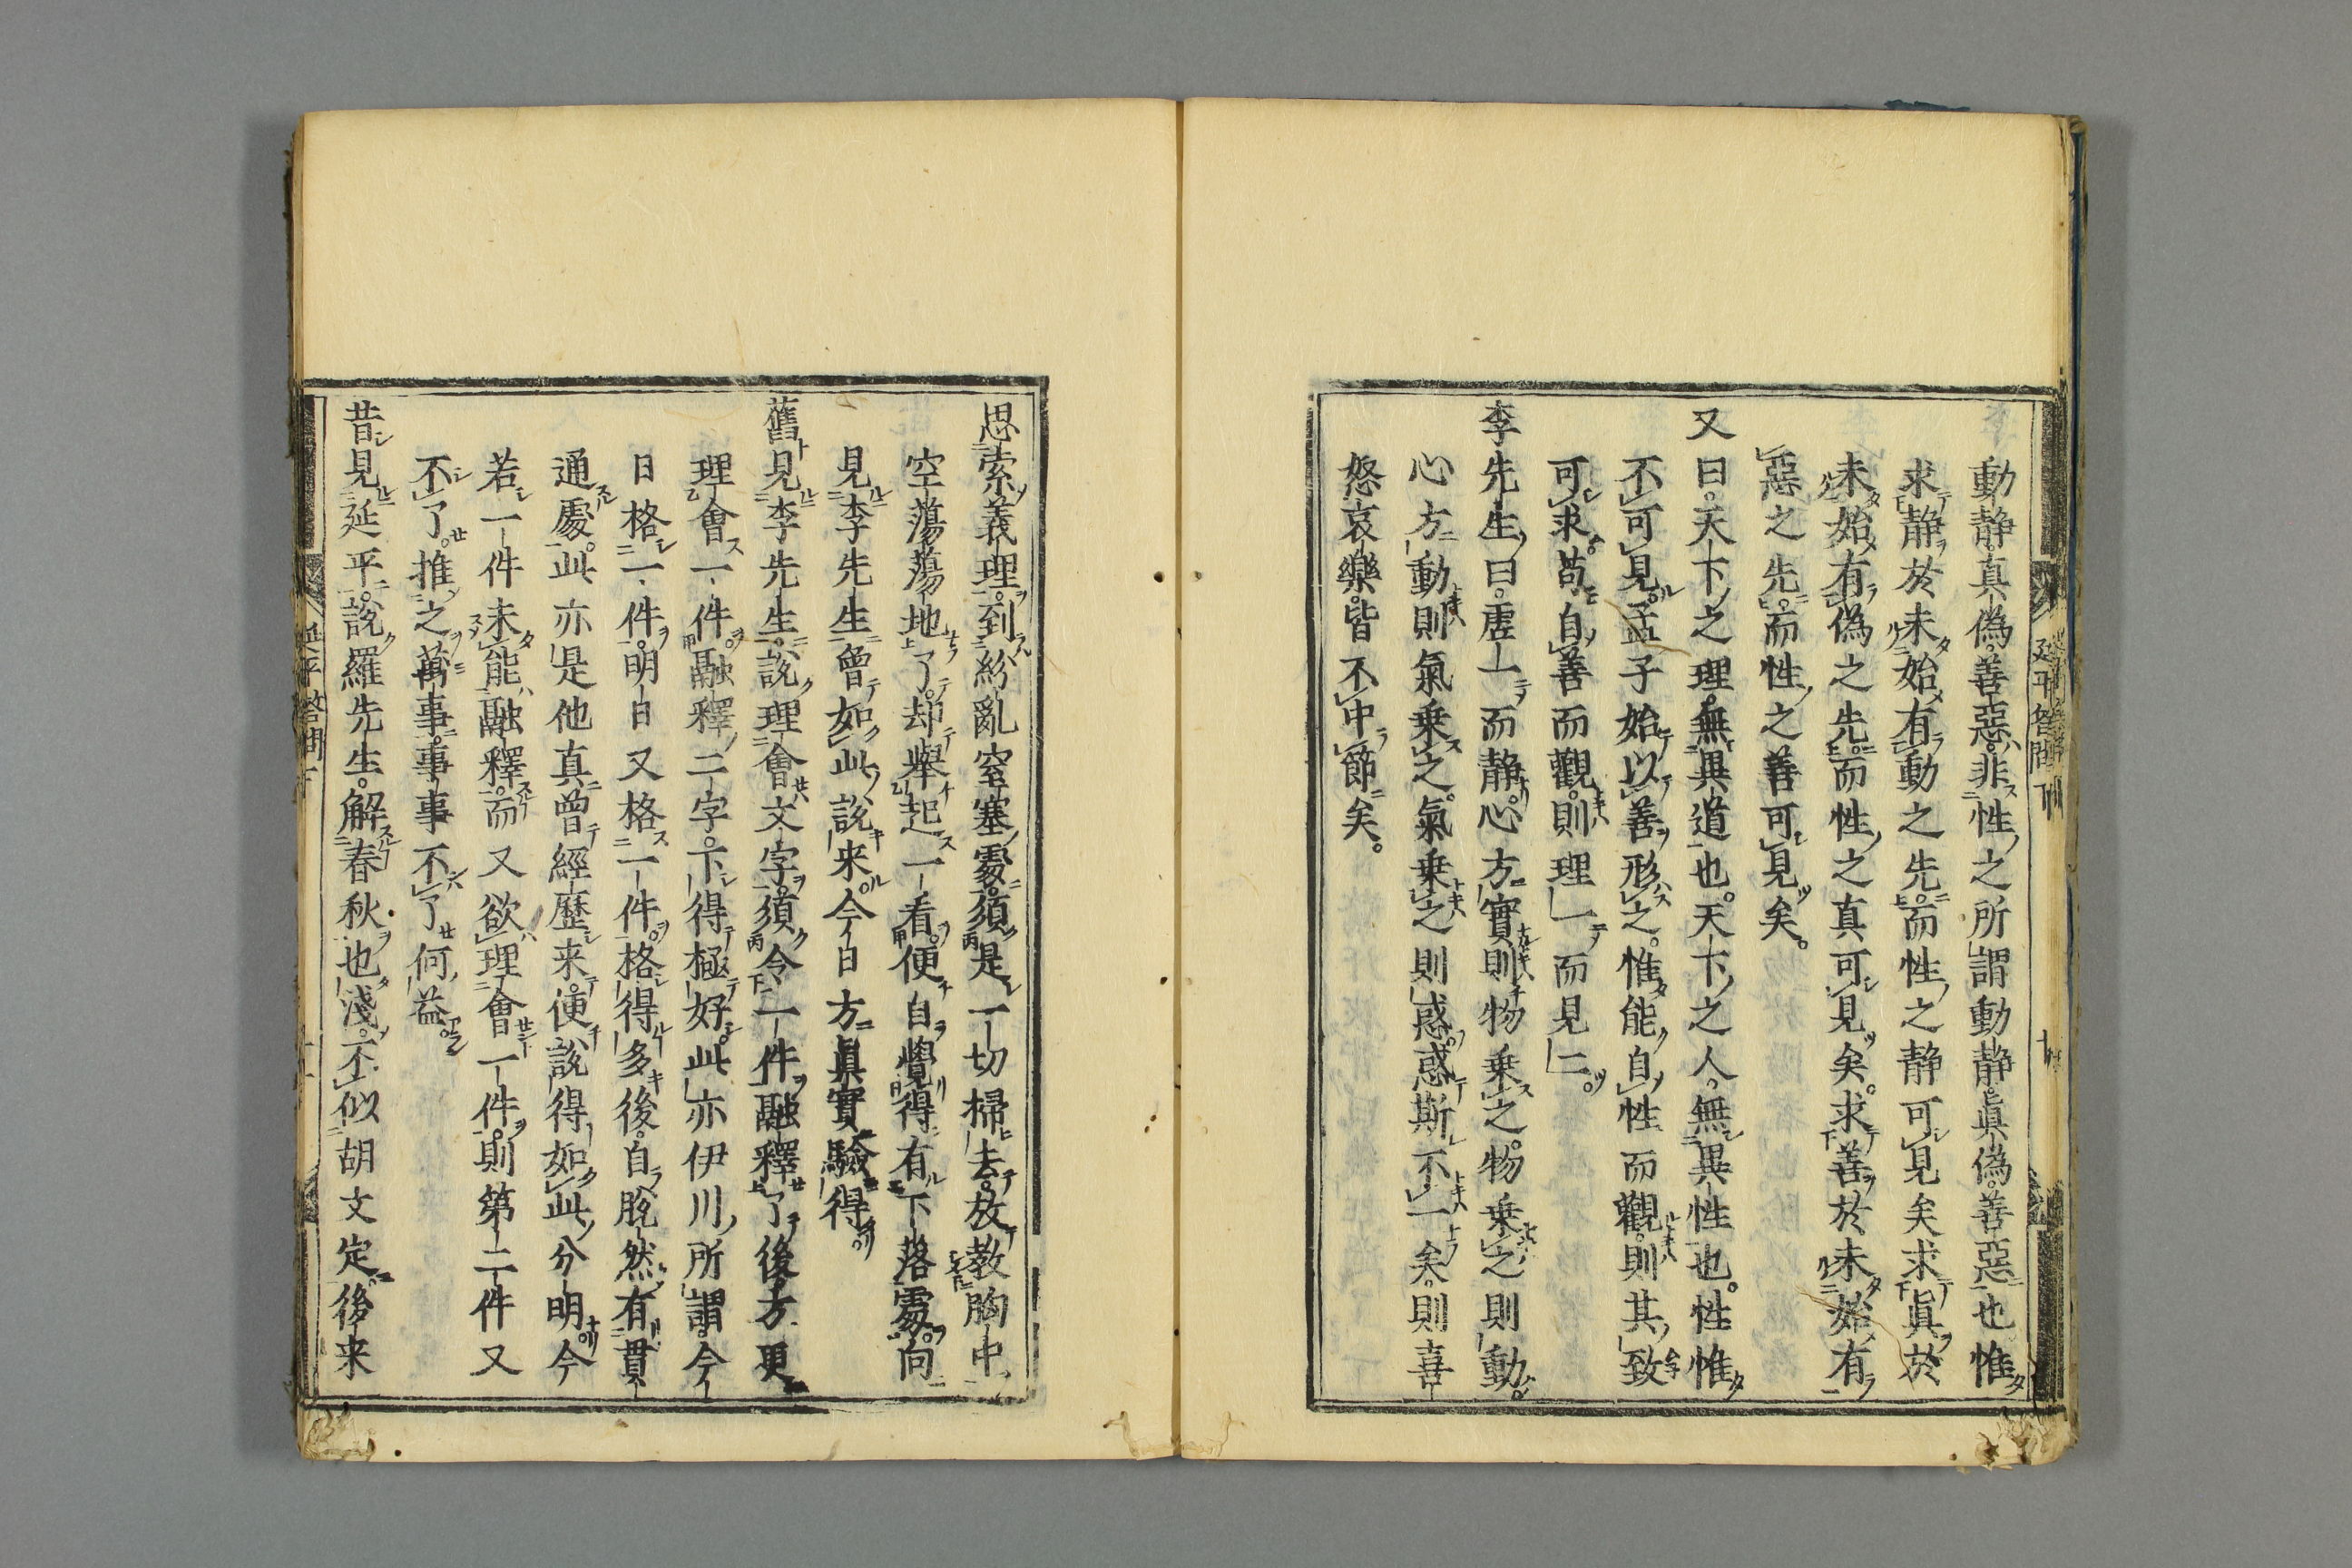 動静真偽善惡非性之所謂動静眞偽善惡也惟
求静於未始有動之先而性之静可見矣求眞於
未始有偽之先而性之真可見矣求善於未始有
惡之先而性之善可見矣
又曰天下之理無異道也天下之人無異性也性惟
不可見孟子始以善形之惟能自性而觀則其致
可求苟自善而觀則理一而見二
李先生曰虗一而静心方實則物乗之物乗之則動
心方動則氣乗之氣乗之則惑惑斯不一矣則喜
怒哀樂皆不中節矣
思索義理到紛亂窒塞處須是一切掃去放教胸中
空蕩蕩地了却舉起一看便自覺得有下落處向
見李先生曾如此說来今日方眞實驗得
舊見李先生說理會文字須令一件融釋了後方更
理會一件融釋二字下得極好此亦伊川所謂今
日格一件明日又格一件格得多後自脫然有貫
通處此亦是他真曾經歷来便說得如此分明今
若一件未能融釋而又欲理會一件則第二件又
不了推之萬事事事不了何益
昔見延平說羅先生解春秋也淺不似胡文定後来
延平答問下